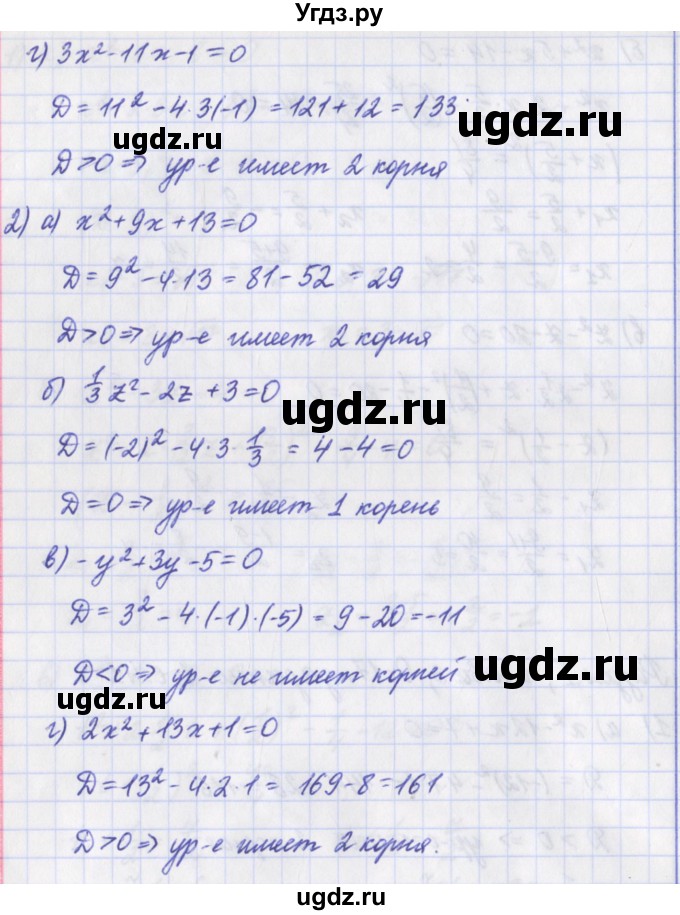 Угдз.ру
г) 3x² - 11x - 1 = 0
D = 11² - 4·3(-1) = 121 + 12 = 133.
ugdz.ru ugdz.ru
D > 0 => ур-е имеет 2 корня
2) а) x² + 9x + 13 = 0
D = 9² - 4·13 = 81 - 52 = 29
D > 0 => ур-е имеет 2 корня
б) 1/3 z² - 2z + 3 = 0
ugdz.ru
D = (-2)² - 4·3·1/3 = 4 - 4 = 0
D = 0 => ур-е имеет 1 корень
в) -y² + 3y - 5 = 0
D = 3² - 4·(-1)·(-5) = 9 - 20 = -11
ugdz.ru
D < 0 => ур-е не имеет корней
ugdz.ru
г) 2x² + 13x + 1 = 0
D = 13² - 4·2·1 = 169 - 8 = 161
D > 0 => ур-е имеет 2 корня.
ugdz.ru